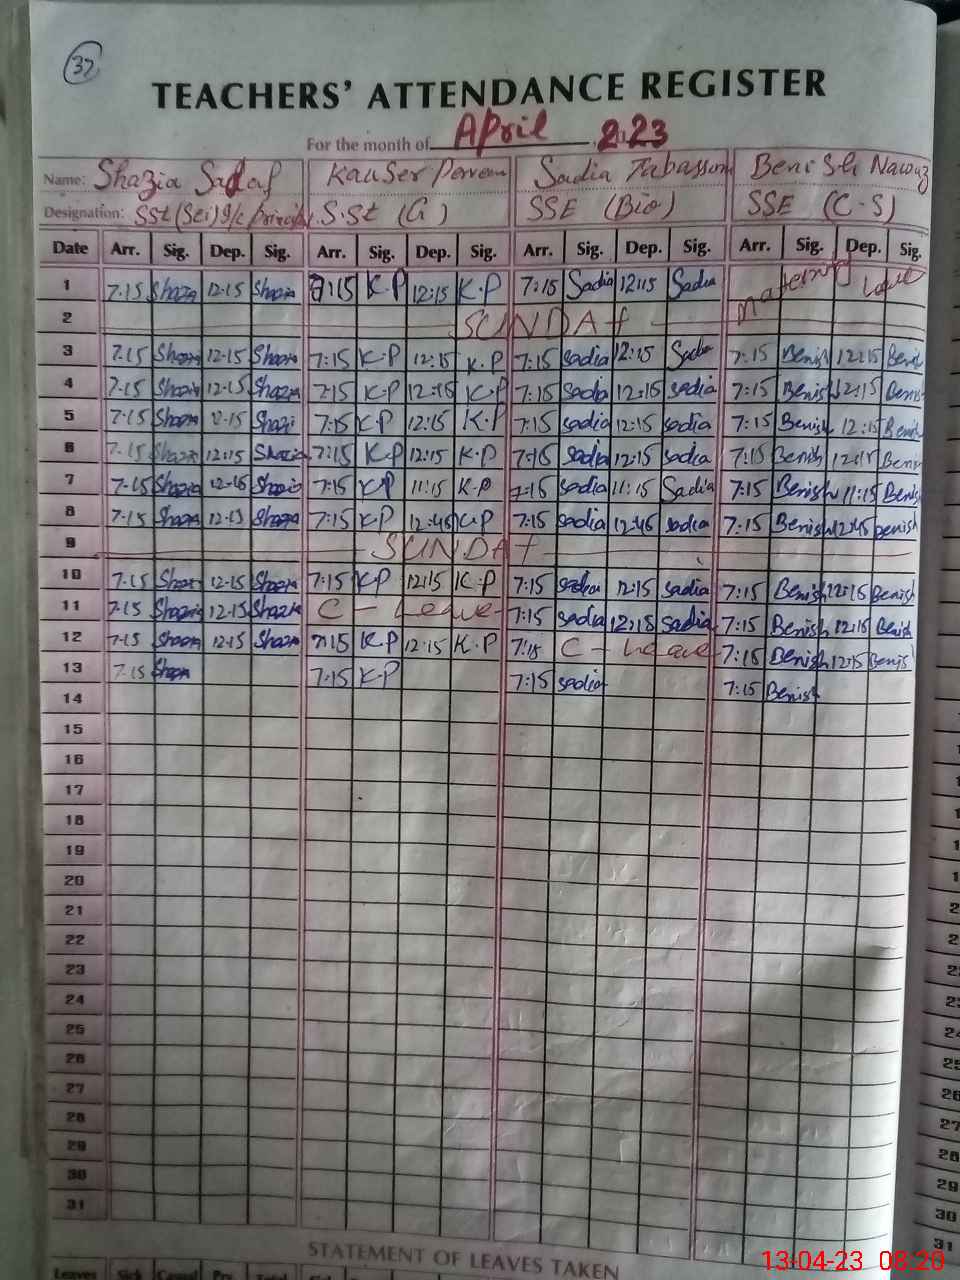 37
TEACHERS' ATTENDANCE REGISTER
For the month of April 2023
Name: Shazia Sadaf Kauser Perveen Sadia Tabassum Benish Nawaz
Designation: SSt (Sci) I/c Principal S.St (G) SSE (Bio) SSE (C-S)
Date Arr. Sig. Dep. Sig. Arr. Sig. Dep. Sig. Arr. Sig. Dep. Sig. Arr. Sig. Dep. Sig.
1 7:15 Shazia 12:15 Shazia 7:15 K.P 12:15 K.P 7:15 Sadia 12:15 Sadia Maternity Leave
2 SUNDAY
3 7:15 Shazia 12:15 Shazia 7:15 K.P 12:15 K.P 7:15 Sadia 12:15 Sadia 7:15 Benish 12:15 Benish
4 7:15 Shazia 12:15 Shazia 7:15 K.P 12:15 K.P 7:15 Sadia 12:15 sadia 7:15 Benish 12:15 Benish
5 7:15 Shazia 12:15 Shazi 7:15 K.P 12:15 K.P 7:15 sadia 12:15 sadia 7:15 Benish 12:15 Benish
6 7:15 Shazia 12:15 Shazia 7:15 K.P 12:15 K.P 7:15 sadia 12:15 sadia 7:15 Benish 12:15 Benish
7 7:15 Shazia 12:15 Shazia 7:15 K.P 11:15 K.P 7:15 sadia 11:15 Sadia 7:15 Benish 11:15 Benish
8 7:15 Shazia 12:15 Shazia 7:15 K.P 12:45 K.P 7:15 sadia 12:45 sadia 7:15 Benish 12:45 Benish
9 SUNDAY
10 7:15 Shazia 12:15 Shazia 7:15 K.P 12:15 K.P 7:15 sadia 12:15 sadia 7:15 Benish 12:15 Benish
11 7:15 Shazia 12:15 Shazia C - Leave 7:15 sadia 12:15 sadia 7:15 Benish 12:15 Benish
12 7:15 Shazia 12:15 Shazia 7:15 K.P 12:15 K.P 7:15 C - Leave 7:15 Benish 12:15 Benish
13 7:15 Shazia 7:15 K.P 7:15 sadia 7:15 Benish
14
15
16
17
18
19
20
21
22
23
24
25
26
27
28
29
30
31
STATEMENT OF LEAVES TAKEN
Leaves Sick
13-04-23 08:20